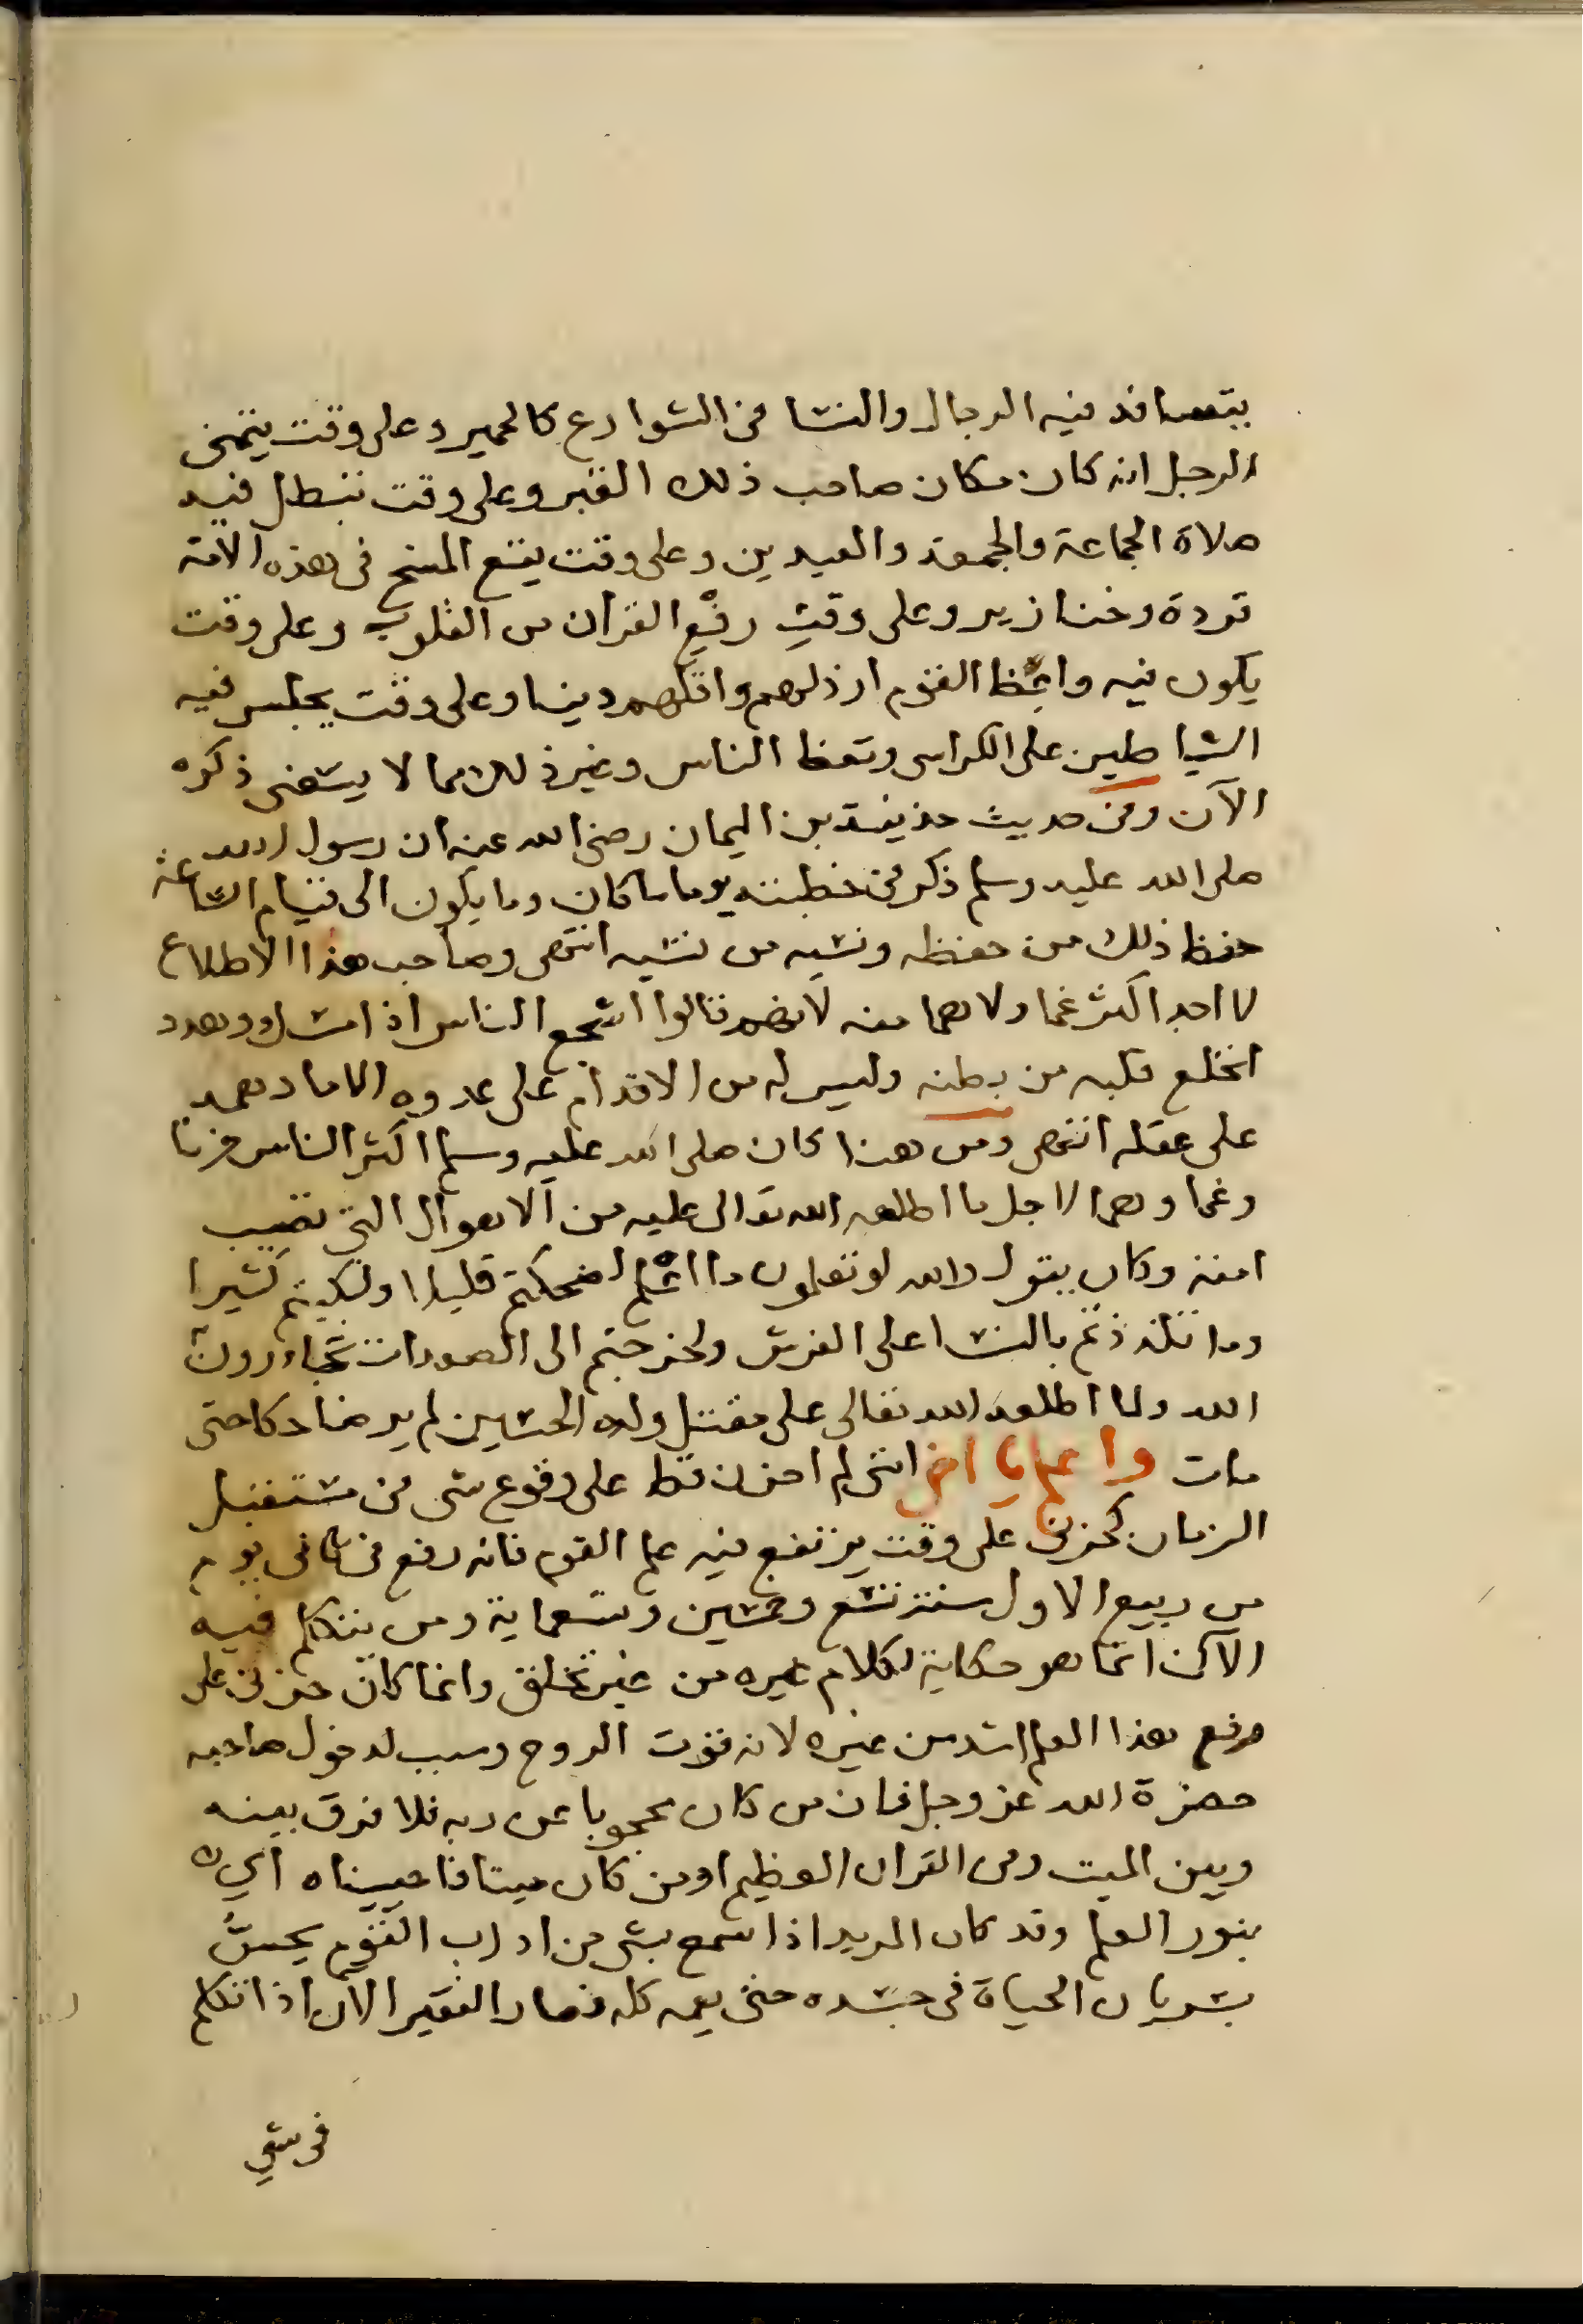 يتصافد فيه الرجال والنسا في الشوارع كالحمير وعلى وقت يتمنى
الرجل انه كان مكان صاحب ذلك القبر وعلى وقت تبطل فيه
صلاة الجماعة والجمعة والعيدين وعلى وقت يقع المسخ في هذه الامة
قردة وخنازير وعلى وقت رفع القران من القلوب وعلى وقت
يكون فيه واعظ القوم ارذلهم واقلهم دينا وعلى وقت يجلس فيه
الشياطين على الكراسى وتعظ الناس وغير ذلك مما لا يسعنى ذكره
الآن وفى حديث حذيفة بن اليمان رضى الله عنه ان رسول الله
صلى الله عليه وسلم ذكر في خطبته يوما ما كان وما يكون الى قيام الساعة
حفظ ذلك من حفظه ونسيه من نسيه انتهى وصاحب هذا الاطلاع
لا احد اكثر غما ولا هما منه لانهم قالوا اشجع الناس اذا هدد
انخلع قلبه من بطنه وليس له من الاقدام على عدوه الا ما دهمه
على عقله انتهى ومن هنا كان صلى الله عليه وسلم اكثر الناس حزنا
وغما وهما لاجل ما اطلعه الله تعالى عليه من الاهوال التى تصيب
امته وكان يقول والله لو تعلمون ما اعلم لضحكتم قليلا ولبكيتم كثيرا
وما تلذذتم بالنسا على الفرش ولخرجتم الى الصعدات تجاءرون
الله ولما اطلعه الله تعالى على مقتل ولده الحسين لم ير ضاحكا حتى
مات واعلم يا اخى اننى لم احزن قط على وقوع شى في مستقبل
الزمان كحزنى على وقت يرتفع فيه علم القوم فانه رفع في ثانى يوم
من ربيع الاول سنة تسع وخمسين وتسعماية ومن يتكلم فيه
الآن انما هو حكاية لكلام غيره من غير تخلق وانما كان حزنى على
رفع هذا العلم اشد من غيره لانه قوت الروح وسبب لدخول صاحبه
حضرة الله عز وجل فان من كان محجوبا عن ربه فلا فرق بينه
وبين الميت وفى القران العظيم اومن كان ميتا فاحييناه اي
بنور العلم وقد كان المريد اذا سمع بشى من اداب القوم يحس
بسريان الحياة في جسده حتى يعمه كله فصار الفقير الآن اذا تكلم
في شي